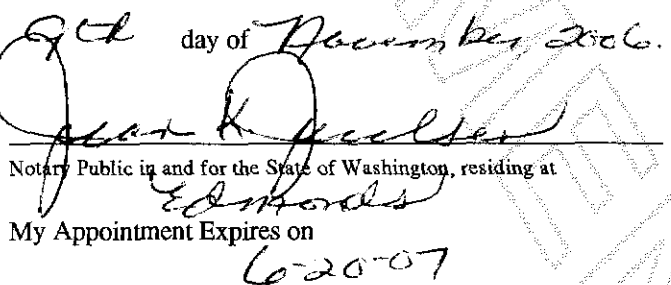 9th day of November, 2006.
Jean K
Notary Public in and for the State of Washington, residing at
Edmonds
My Appointment Expires on
6-20-07